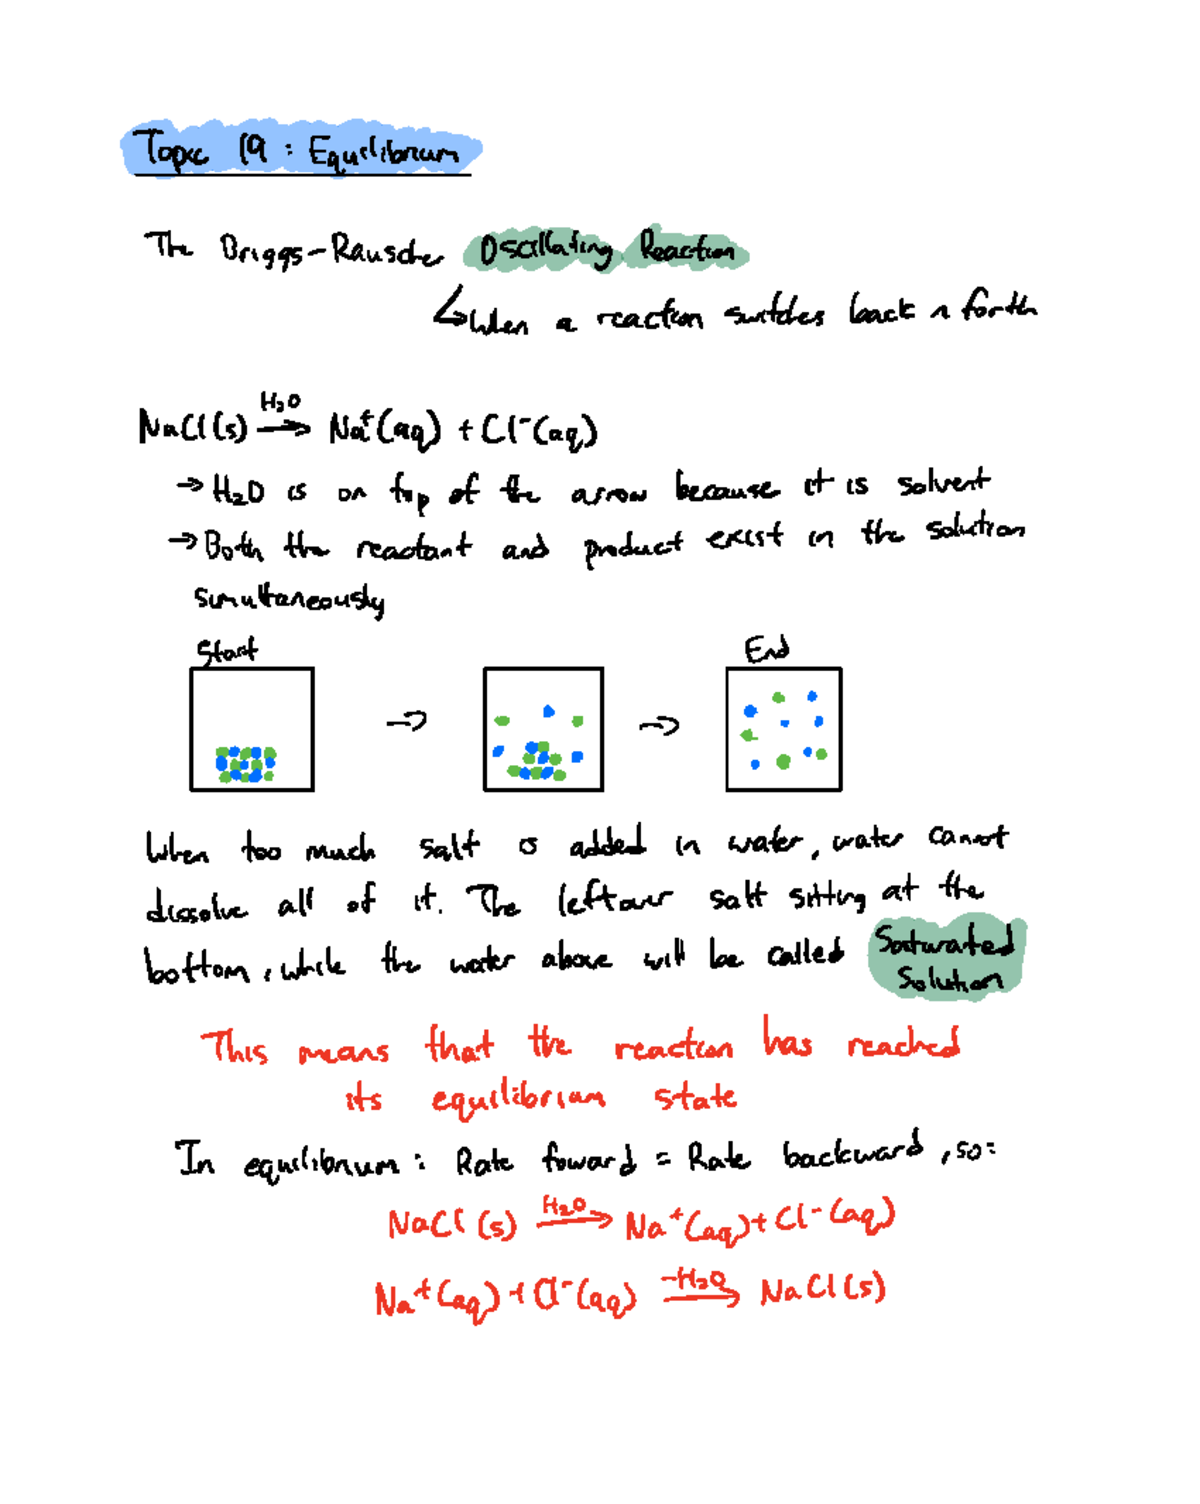 Topic 19 : Equilibrium
The Briggs-Rausche Oscillating Reaction
↳ When a reaction switches back n forth
NaCl(s) H₂O→ Na⁺(aq) + Cl⁻(aq)
→ H₂O is on top of the arrow because it is solvent
→ Both the reactant and product exist in the solution
simultaneously
Start → → End
When too much salt is added in water, water cannot
dissolve all of it. The leftover salt sitting at the
bottom, while the water above will be called Saturated
Solution
This means that the reaction has reached
its equilibrium state
In equilibrium : Rate foward = Rate backward, so:
NaCl (s) H₂O→ Na⁺(aq) + Cl⁻(aq)
Na⁺(aq) + Cl⁻(aq) -H₂O→ NaCl(s)